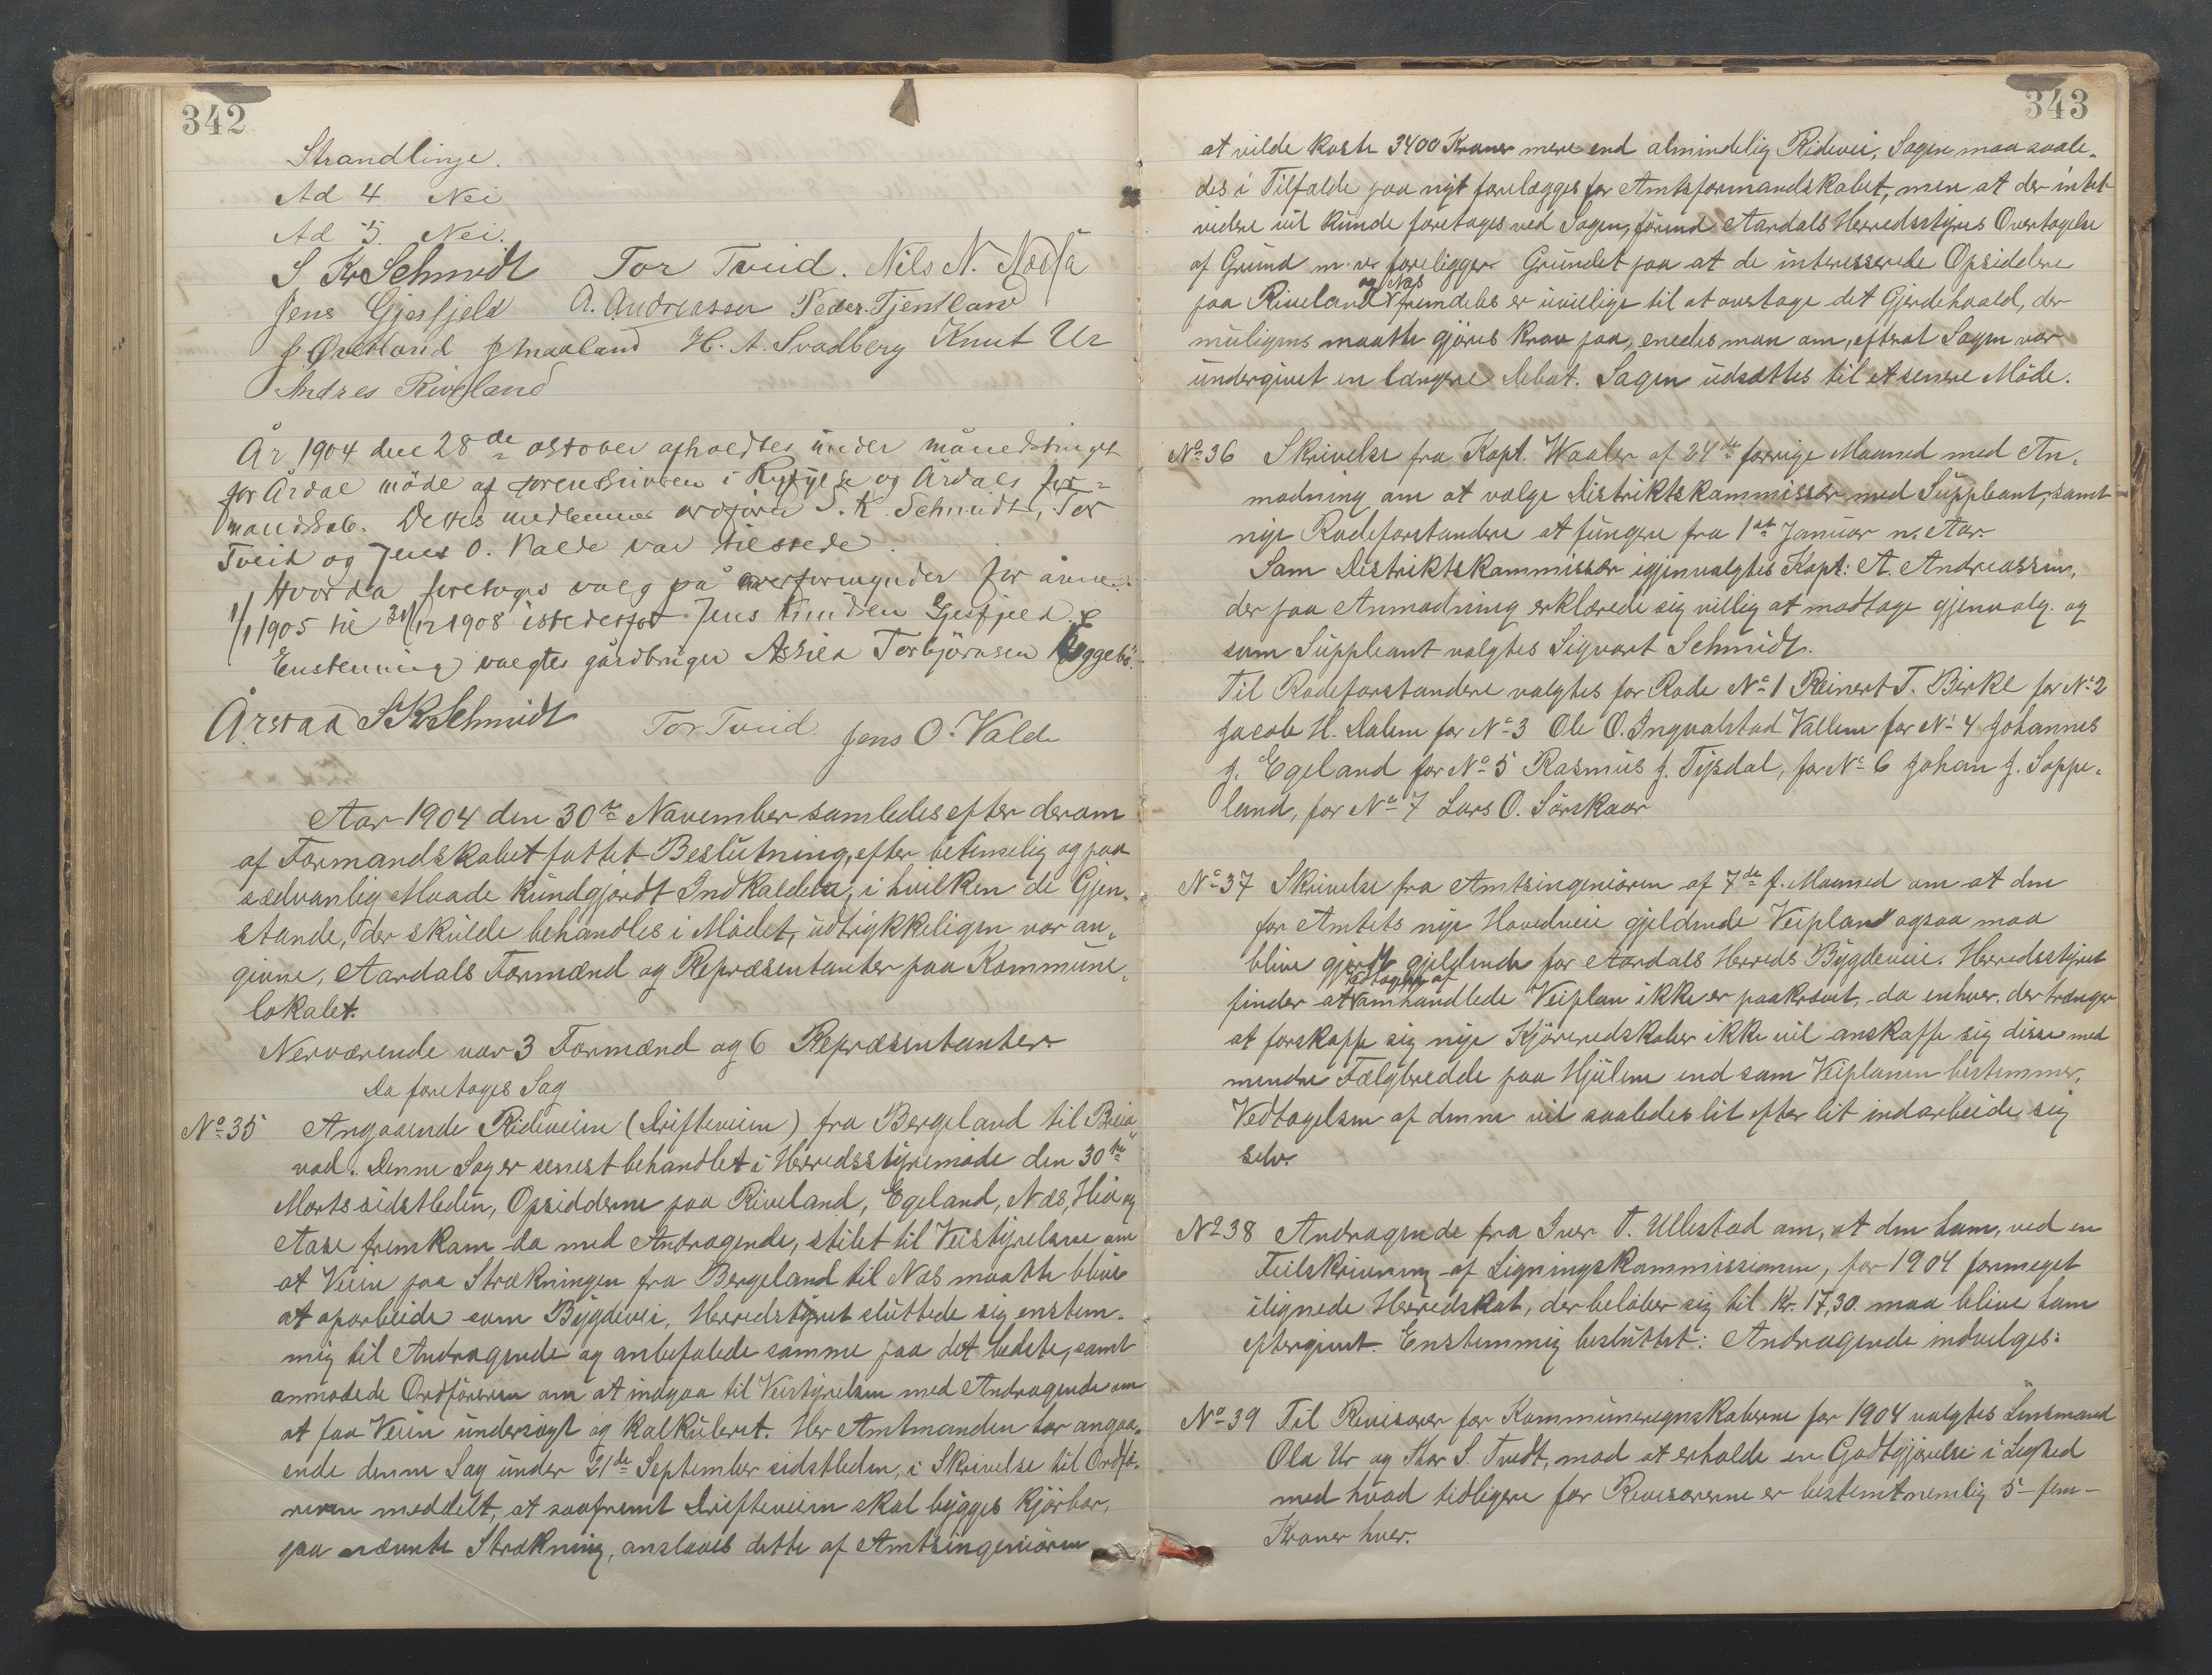 342
Strandlinje.
Ad 4 Nei
Ad 5. Nei.
S Kr Schmidt Tor Tveid. Nils N. Nodfa
Jens Gjesfjeld A. Andreassen Peder Tjentland
J. Østerland J Maaland H. A. Svadberg Knut Ur
Andres Riveland
År 1904 den 28de oktober afholdtes under månedstinget
for Årdal møde af sorenskriveren i Ryfylke og Årdals for-
mandskab. Dettes medlemmer ordfører S. K. Schmidt, Tor
Tveid og Jens O. Valde var tilstede.
Hvorda foretoges valg på overformynder for årene
1/1 1905 til 31/12 1908 istedetfor Jens Knudsen Gjesfjeld.
Enstemmig valgtes gårdbruger Aslien Torbjørnsen Eggebø.
Årstad S Kr Schmidt Tor Tveid Jens O. Valde
Aar 1904 den 30te November samledes efter derom
af Formandskabet fattet Beslutning, efter betimelig og paa
sædvanlig Maade kundgjordt Indkaldelse, i hvilken de Gjen-
stande, der skulde behandles i Mødet, udtrykkeligen var an-
givne, Aardals Formænd og Repræsentanter paa Kommune-
lokalet.
Nerværende var 3 Formænd og 6 Repræsentanter
Da foretoges Sag
No 35 Angaaende Rideveien (Drifteveien) fra Bergeland til Breia-
vad. Denne Sag er senest behandlet i Herredsstyremøde den 30te
Marts sidstleden, Opsidderne paa Riveland, Egeland, Næs, Hia og
Aase fremkom da med Andragende, stilet til Veistyrelsen om
at Veien paa Strækningen fra Bergeland til Næs maatte blive
at oparbeide som Bygdevei, Herredstyret sluttede sig enstem-
mig til Andragende og anbefalede samme paa det bedste, samt
anmodede Ordføreren om at indgaa til Veistyrelsen med Andragende om
at faa Veien undersøgt og kalkuleret. Her Amtmanden har angaa-
ende denne Sag under 21de September sidstleden, i Skrivelse til Ordfø-
reren meddelt, at saafremt Drifteveien skal bygges kjørbar,
paa nævnte Strækning, anslaaes dette af Amtsingeniøren
343
at vilde koste 3400 Kroner mere end almindelig Ridevei, Sagen maa saale-
des i Tilfælde paa nyt forelægges for Amtsformandskabet, men at der intet
videre vil kunde foretages ved Sagen, førend Aardals Herredsstyres Overtagelse
af Grund m.v. foreligger. Grundet paa at de interesserede Opsiddere
paa Riveland og Næs fremdeles er uvillige til at overtage det Gjerdehald, der
muligens maatte gjøres krav paa, enedes man om, efterat Sagen var
undergivet en længere Debat. Sagen udsættes til et senere Møde.
No 36 Skrivelse fra Kapt. Waaler af 24de forrige Maaned med An-
modning om at vælge Distriktskommissær med Suppleant, samt
nye Rodeforstandere at fungere fra 1ste Januar n. Aar.
Som Distriktskommissær igjenvalgtes Kapt: A. Andreassen,
der paa Anmodning erklærede sig villig at modtage gjenvalg. og
som Suppleant valgtes Sigvart Schmidt.
Til Rodeforstandere valgtes for Rode No 1 Reinert T. Birke for No 2
Jacob H. Dalen for No 3 Ole O. Ingvalstad Vallem for No 4 Johannes
J. Egeland for No 5 Rasmus J. Tysdal, for No 6 Johan J. Soppe-
land, for No 7 Lars O. Sørskaar
No 37 Skrivelse fra Amtsingeniøren af 7de f. Maaned om at den
for Amtets nye Hovedveie gjeldende Veiplan ogsaa maa
blive gjordt gjeldende for Aardals Herreds Bygdeveie. Herredsstyret
finder at Vedtagelse af omhandlede Veiplan ikke er paakrævet, da enhver, der trænger
at forskaffe sig nye Kjøreredskaber ikke vil anskaffe sig disse med
mendre Fælgbredde paa Hjulene end som Veiplanen bestemmer,
Vedtagelsen af denne vil saaledes lit efter lit indarbeide sig
selv.
No 38 Andragende fra Iver T. Ullestad om, at den ham, ved en
Feilskrivning af Ligningskommissionen, for 1904 formeget
ilignede Herredskat, der beløber sig til Kr. 17,30. maa blive ham
eftergivet. Enstemmig besluttet: Andragende indvilges:
No 39 Til Revisorer for Kommuneregnskaberne for 1904 valgtes Lensmand
Ola Ur og Thor S. Tvedt, mod at erholde en Godtgjørelse i Lighed
med hvad tidligere for Revisorerne er bestemt nemlig 5 - fem -
Kroner hver.